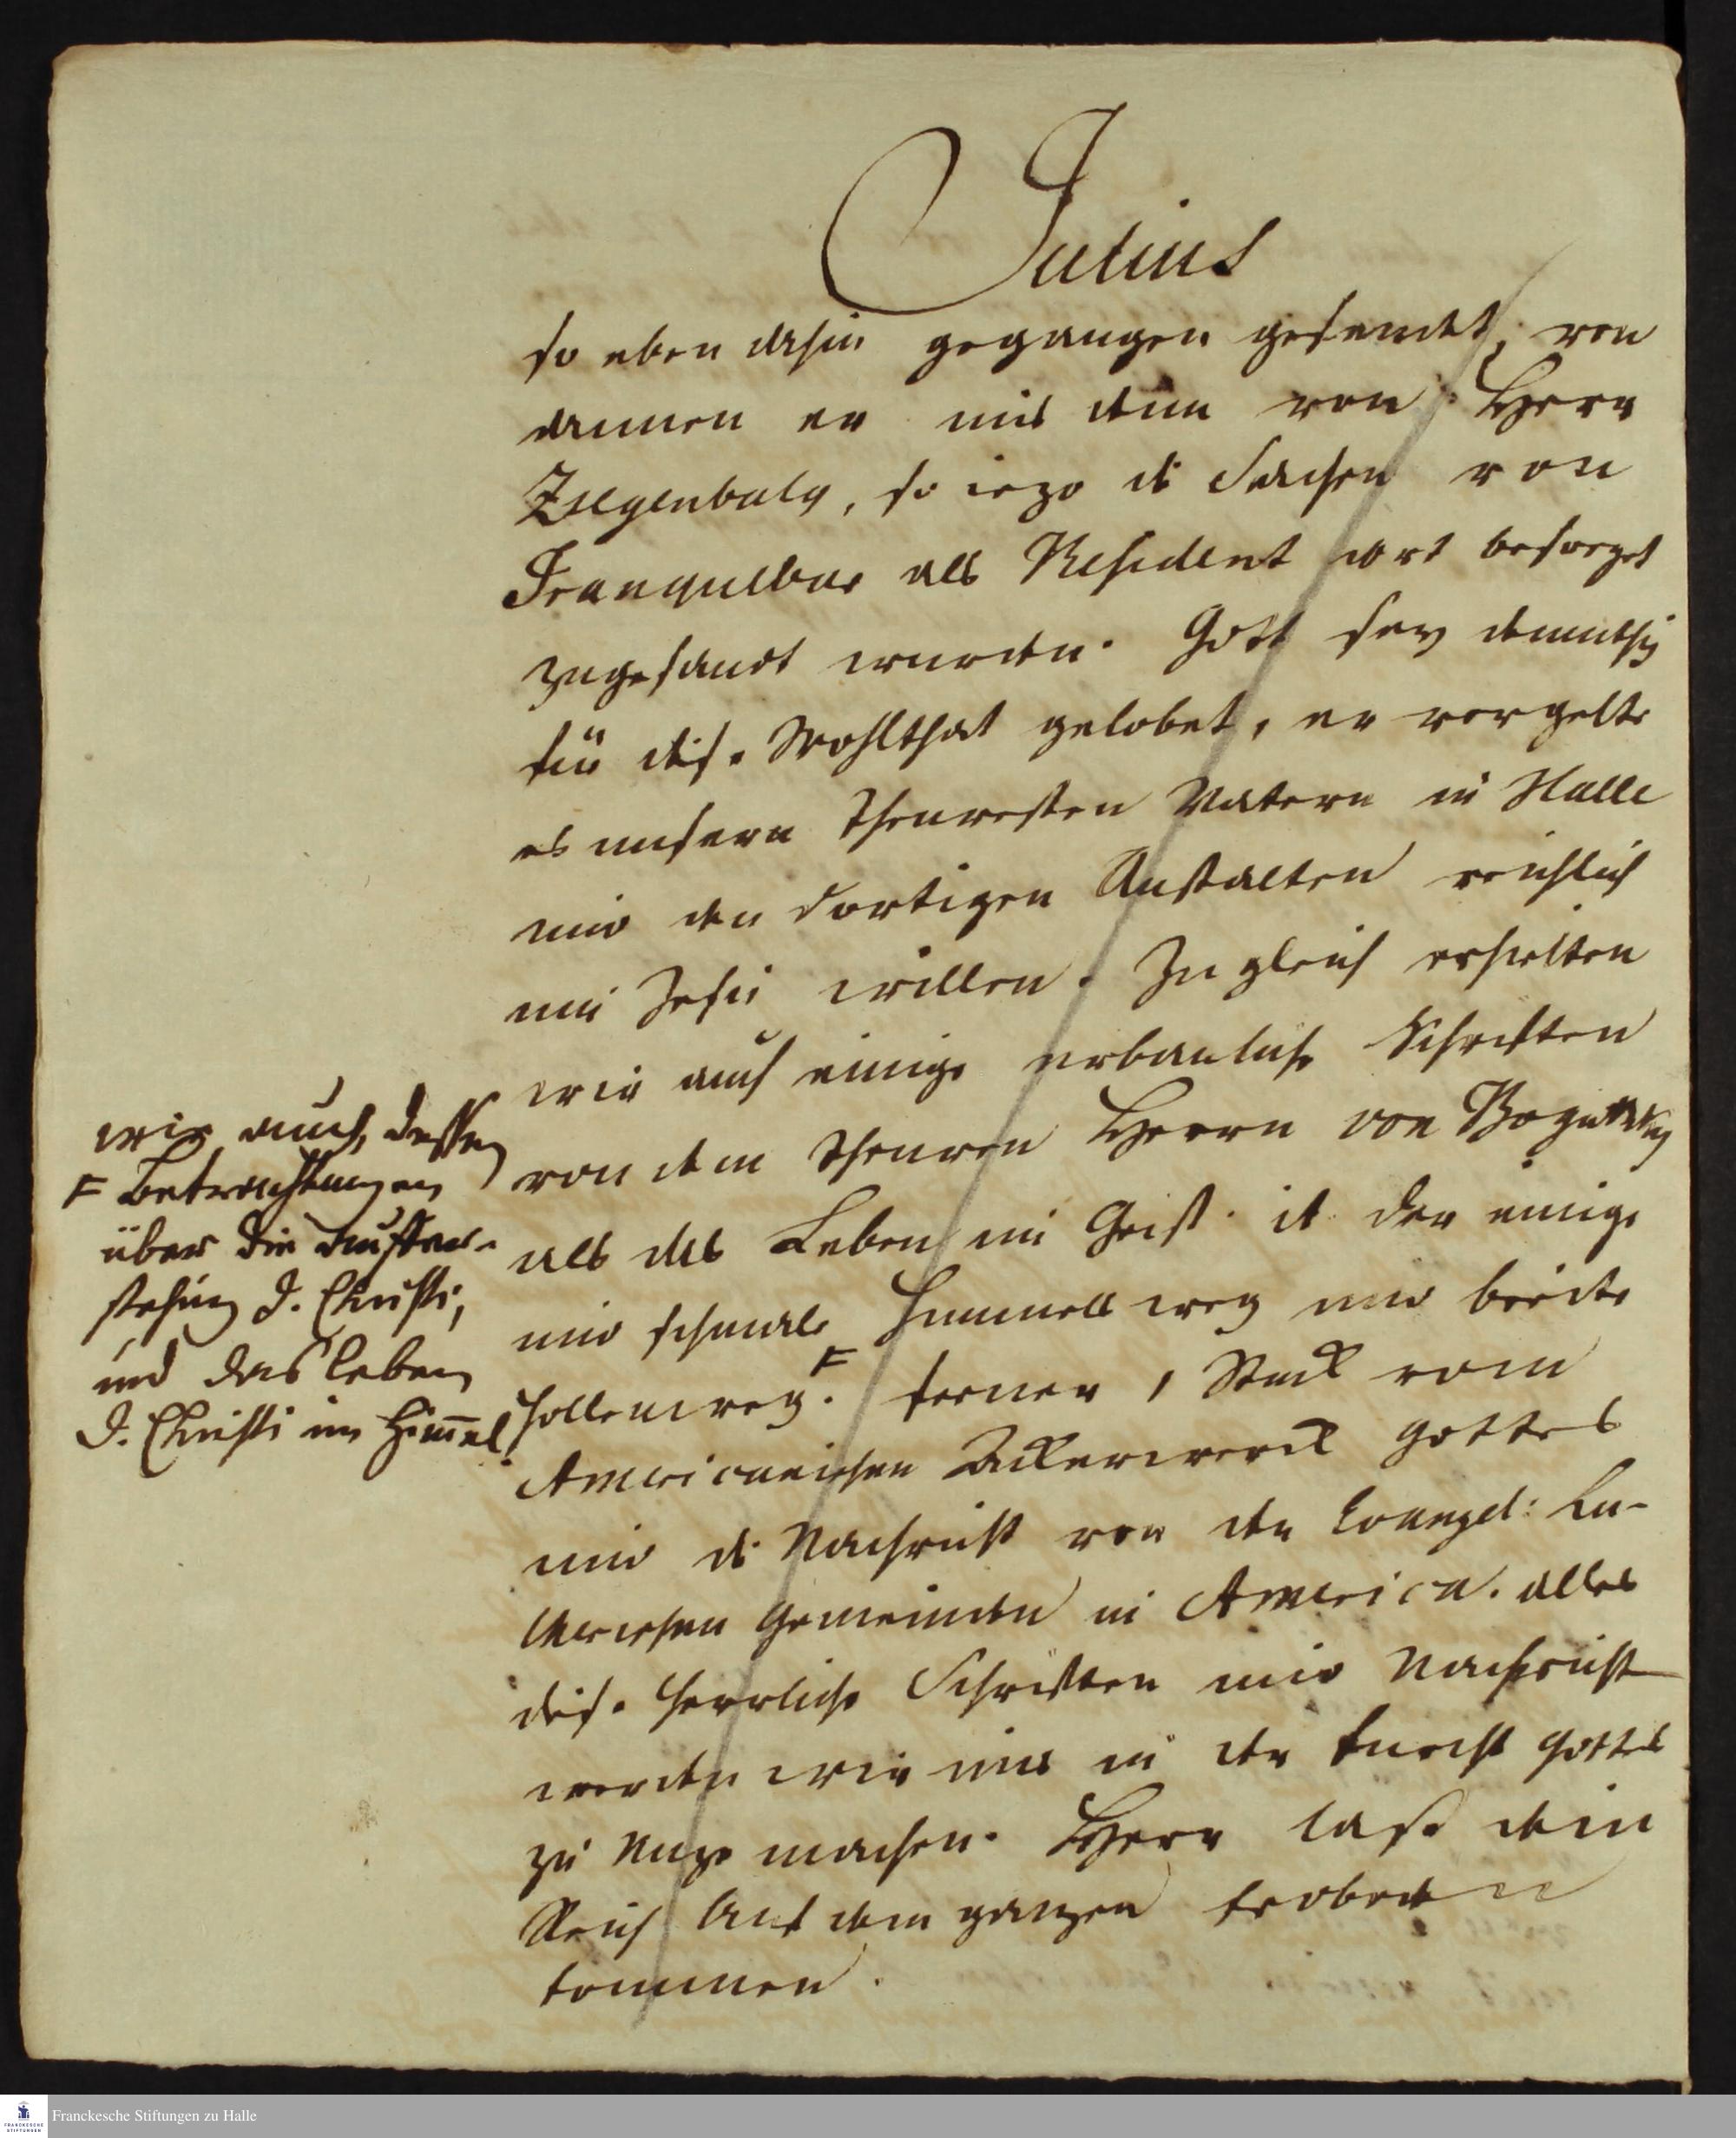 Julius
so eben dahin gegangen gesandt, von
dannen er uns dann von Herr
Ziegenbalg, so iezo die Sachen von
Tranquebar als Resident dort besorget
zugesandt wurden. Gott sey demuthig
für dise Wohlthat gelobet, er vergelte
es unsern theuresten Vätern in Halle
und den dortigen Anstalten reichlich
um Jesu willen. Zugleich erhielten
wir auch einige erbauliche Schriften
von dem theuren Herrn von Bogatzky
als das Leben im Geist. it der einige
und schmale Himmels weg und breite
Höllenweg. F ferner 1 Stück vom
Americanischen Ackerwerck Gottes
und die Nachricht von den Evangel: Lu-
therischen Gemeinden in America. alles
dise herrliche Schriften und Nachricht
werden wir uns in der Furcht Gottes
zu Nuze machen. Herr lasse dein
Reich auf dem ganzen Erdboden
kommen.
wie auch dessen
F Betrachtungen
über die Aufer-
stehung J. Christi,
und das Leben
J. Christi im Him̅el.
Franckesche Stiftungen zu Halle
FRANCKESCHE
STIFTUNGEN